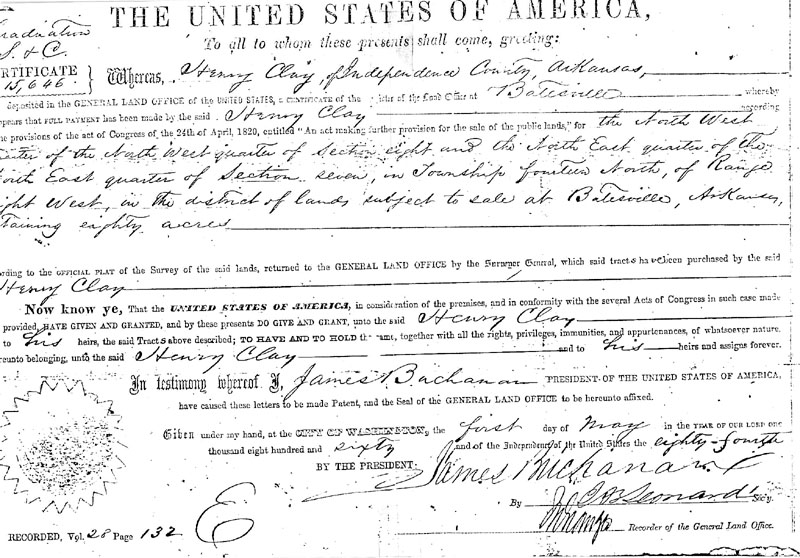 THE UNITED STATES OF AMERICA,
To all to whom these presents shall come, greeting:
raduation
S. & C.
RTIFICATE
15,646.
Whereas, Henry Clay, of Independence County, Arkansas,
deposited in the GENERAL LAND OFFICE of the UNITED STATES, a CERTIFICATE OF THE ister of the Land Office at Batesville whereby
pears that FULL PAYMENT has been made by the said Henry Clay according
he provisions of the act of Congress of the 24th of April, 1820, entitled "An act making further provision for the sale of the public lands," for the North West
uarter of the North West quarter of Section eight and the North East quarter of the
orth East quarter of Section seven, in Township fourteen North, of Range
ight West, in the district of lands subject to sale at Batesville, Arkansas,
taining eighty acres
ording to the OFFICIAL PLAT of the Survey of the said lands, returned to the GENERAL LAND OFFICE by the Surveyor General, which said tracts ha ve been purchased by the said
Henry Clay
Now know ye, That the UNITED STATES OF AMERICA, in consideration of the premises, and in conformity with the several Acts of Congress in such case made
provided, HAVE GIVEN AND GRANTED, and by these presents DO GIVE AND GRANT, unto the said Henry Clay
to his heirs, the said Tracts above described; TO HAVE AND TO HOLD the ame, together with all the rights, privileges, immunities, and appurtenances, of whatsoever nature,
reunto belonging, unto the said Henry Clay and to his heirs and assigns forever.
In testimony whereof I, James Buchanan PRESIDENT OF THE UNITED STATES OF AMERICA,
have caused these letters to be made Patent, and the Seal of the GENERAL LAND OFFICE to be hereunto affixed.
Given under my hand, at the CITY OF WASHINGTON, the first day of May in the YEAR OF OUR LORD one
thousand eight hundred and sixty and of the Independence of the United States the eighty-fourth
BY THE PRESIDENT: James Buchanan
By J. B. Leonard Sec'y.
Recorder of the General Land Office.
RECORDED, Vol. 28 Page 132